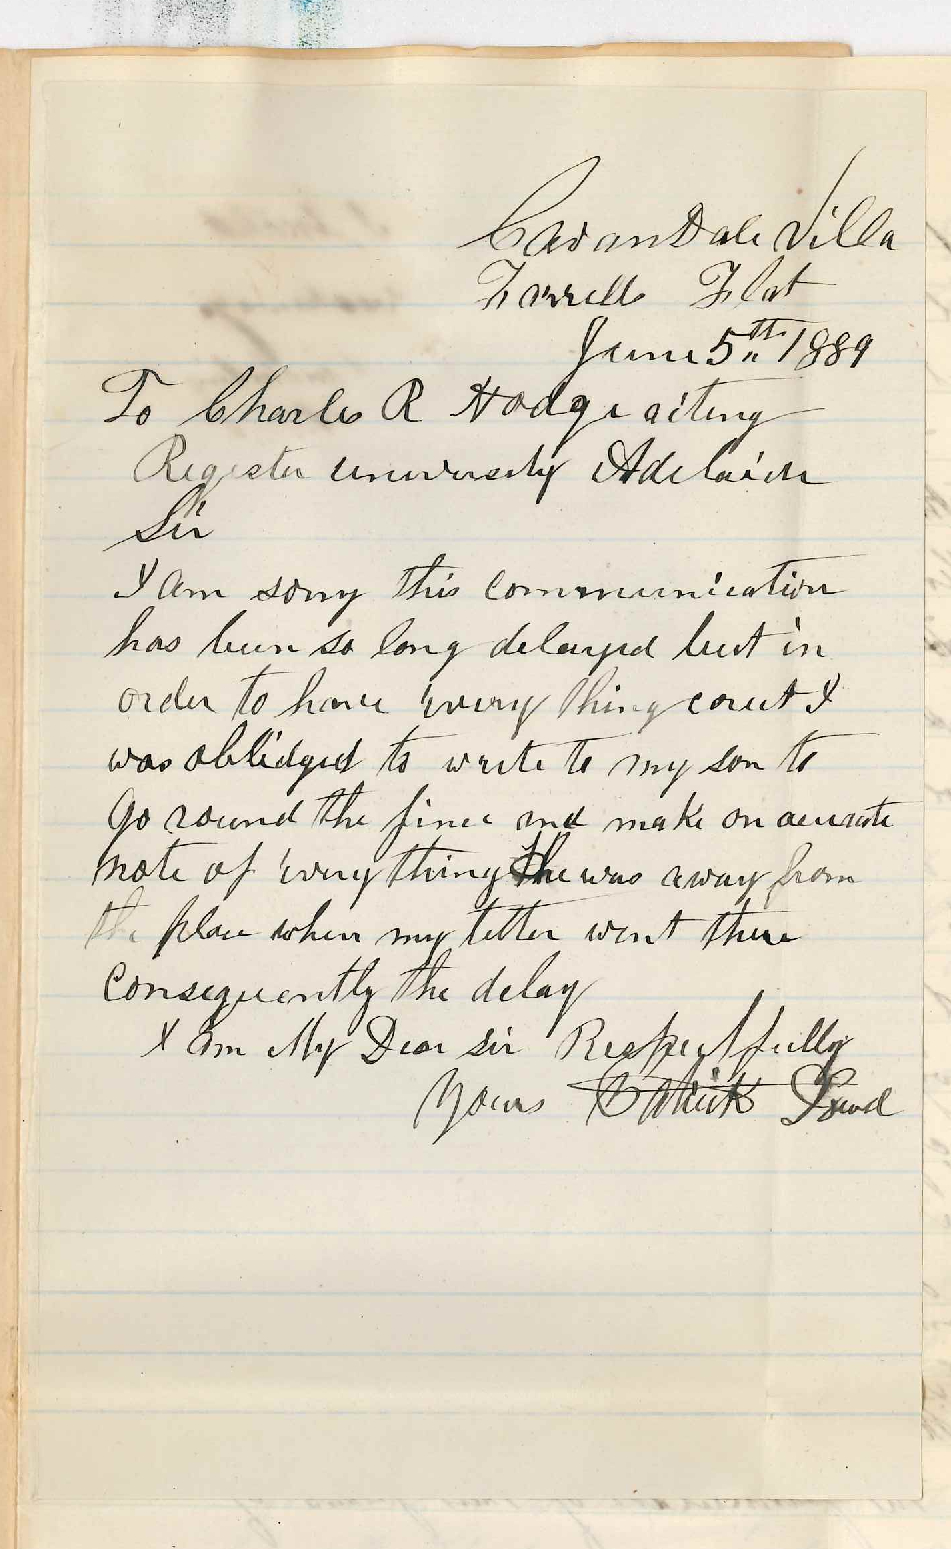 CavanDale Villa
Flat
June 5th 1889
To Charles R Hodge acting
Regester university Adelaide
Sir
I am sorry this communication
has been so long delayed but in
order to have every thing corect I
was oblidged to write to my son to
Go round the fince and make an acurate
note of every thing he was away from
the place when my letter went there
consequently the delay
I am My Dear sir Respectfully
Yours Patrick